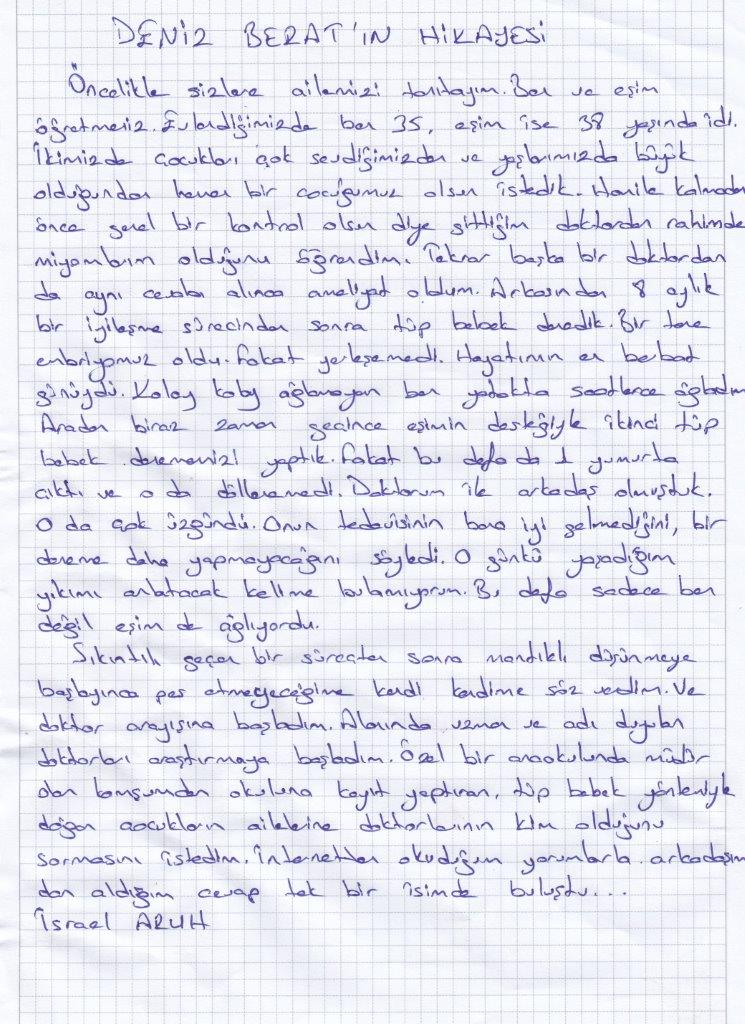 DENİZ BERAT'IN HİKAYESİ
Öncelikle sizlere ailemizi tanıtayım. Ben ve eşim
öğretmeniz. Evlendiğimizde ben 35, eşim ise 38 yaşında idi.
İkimizde çocukları çok sevdiğimizden ve yaşlarımızda büyük
olduğundan hemen bir cocuğumuz olsun istedik. Hamile kalmadan
önce genel bir kontrol olsun diye gittiğim doktordan rahimde
miyomlarım olduğunu öğrendim. Tekrar başka bir doktordan
da aynı cevabı alınca ameliyat oldum. Arkasından 8 aylık
bir iyileşme sürecinden sonra tüp bebek denedik. Bir tane
embriyomuz oldu. Fakat yerleşemedi. Hayatımın en berbat
günüydü. Kolay kolay ağlamayan ben yatakta saatlerce ağladım
Aradan biraz zaman geçince eşimin desteğiyle ikinci tüp
bebek denememizi yaptık. Fakat bu defa da 1 yumurta
çıktı ve o da döllenemedi. Doktorum ile arkadaş olmuştuk.
O da çok üzgündü. Onun tedavisinin bana iyi gelmediğini, bir
deneme daha yapmayacağını söyledi. O günkü yaşadığım
yıkımı anlatacak kelime bulamıyorum. Bu defa sadece ben
değil eşim de ağlıyordu.
Sıkıntılı geçen bir süreçten sonra mantıklı düşünmeye
başlayınca pes etmeyeceğime kendi kendime söz verdim. Ve
doktor arayışına başladım. Alanında uzman ve adı duyulan
doktorları araştırmaya başladım. Özel bir anaokulunda müdür
olan komşumdan okuluna kayıt yaptıran, tüp bebek yöntemiyle
doğan çocukların ailelerine doktorlarının kim olduğunu
sormasını istedim. İnternetten okuduğum yorumlarla arkadaşım
dan aldığım cevap tek bir isimde buluştu...
İsrael ARUH